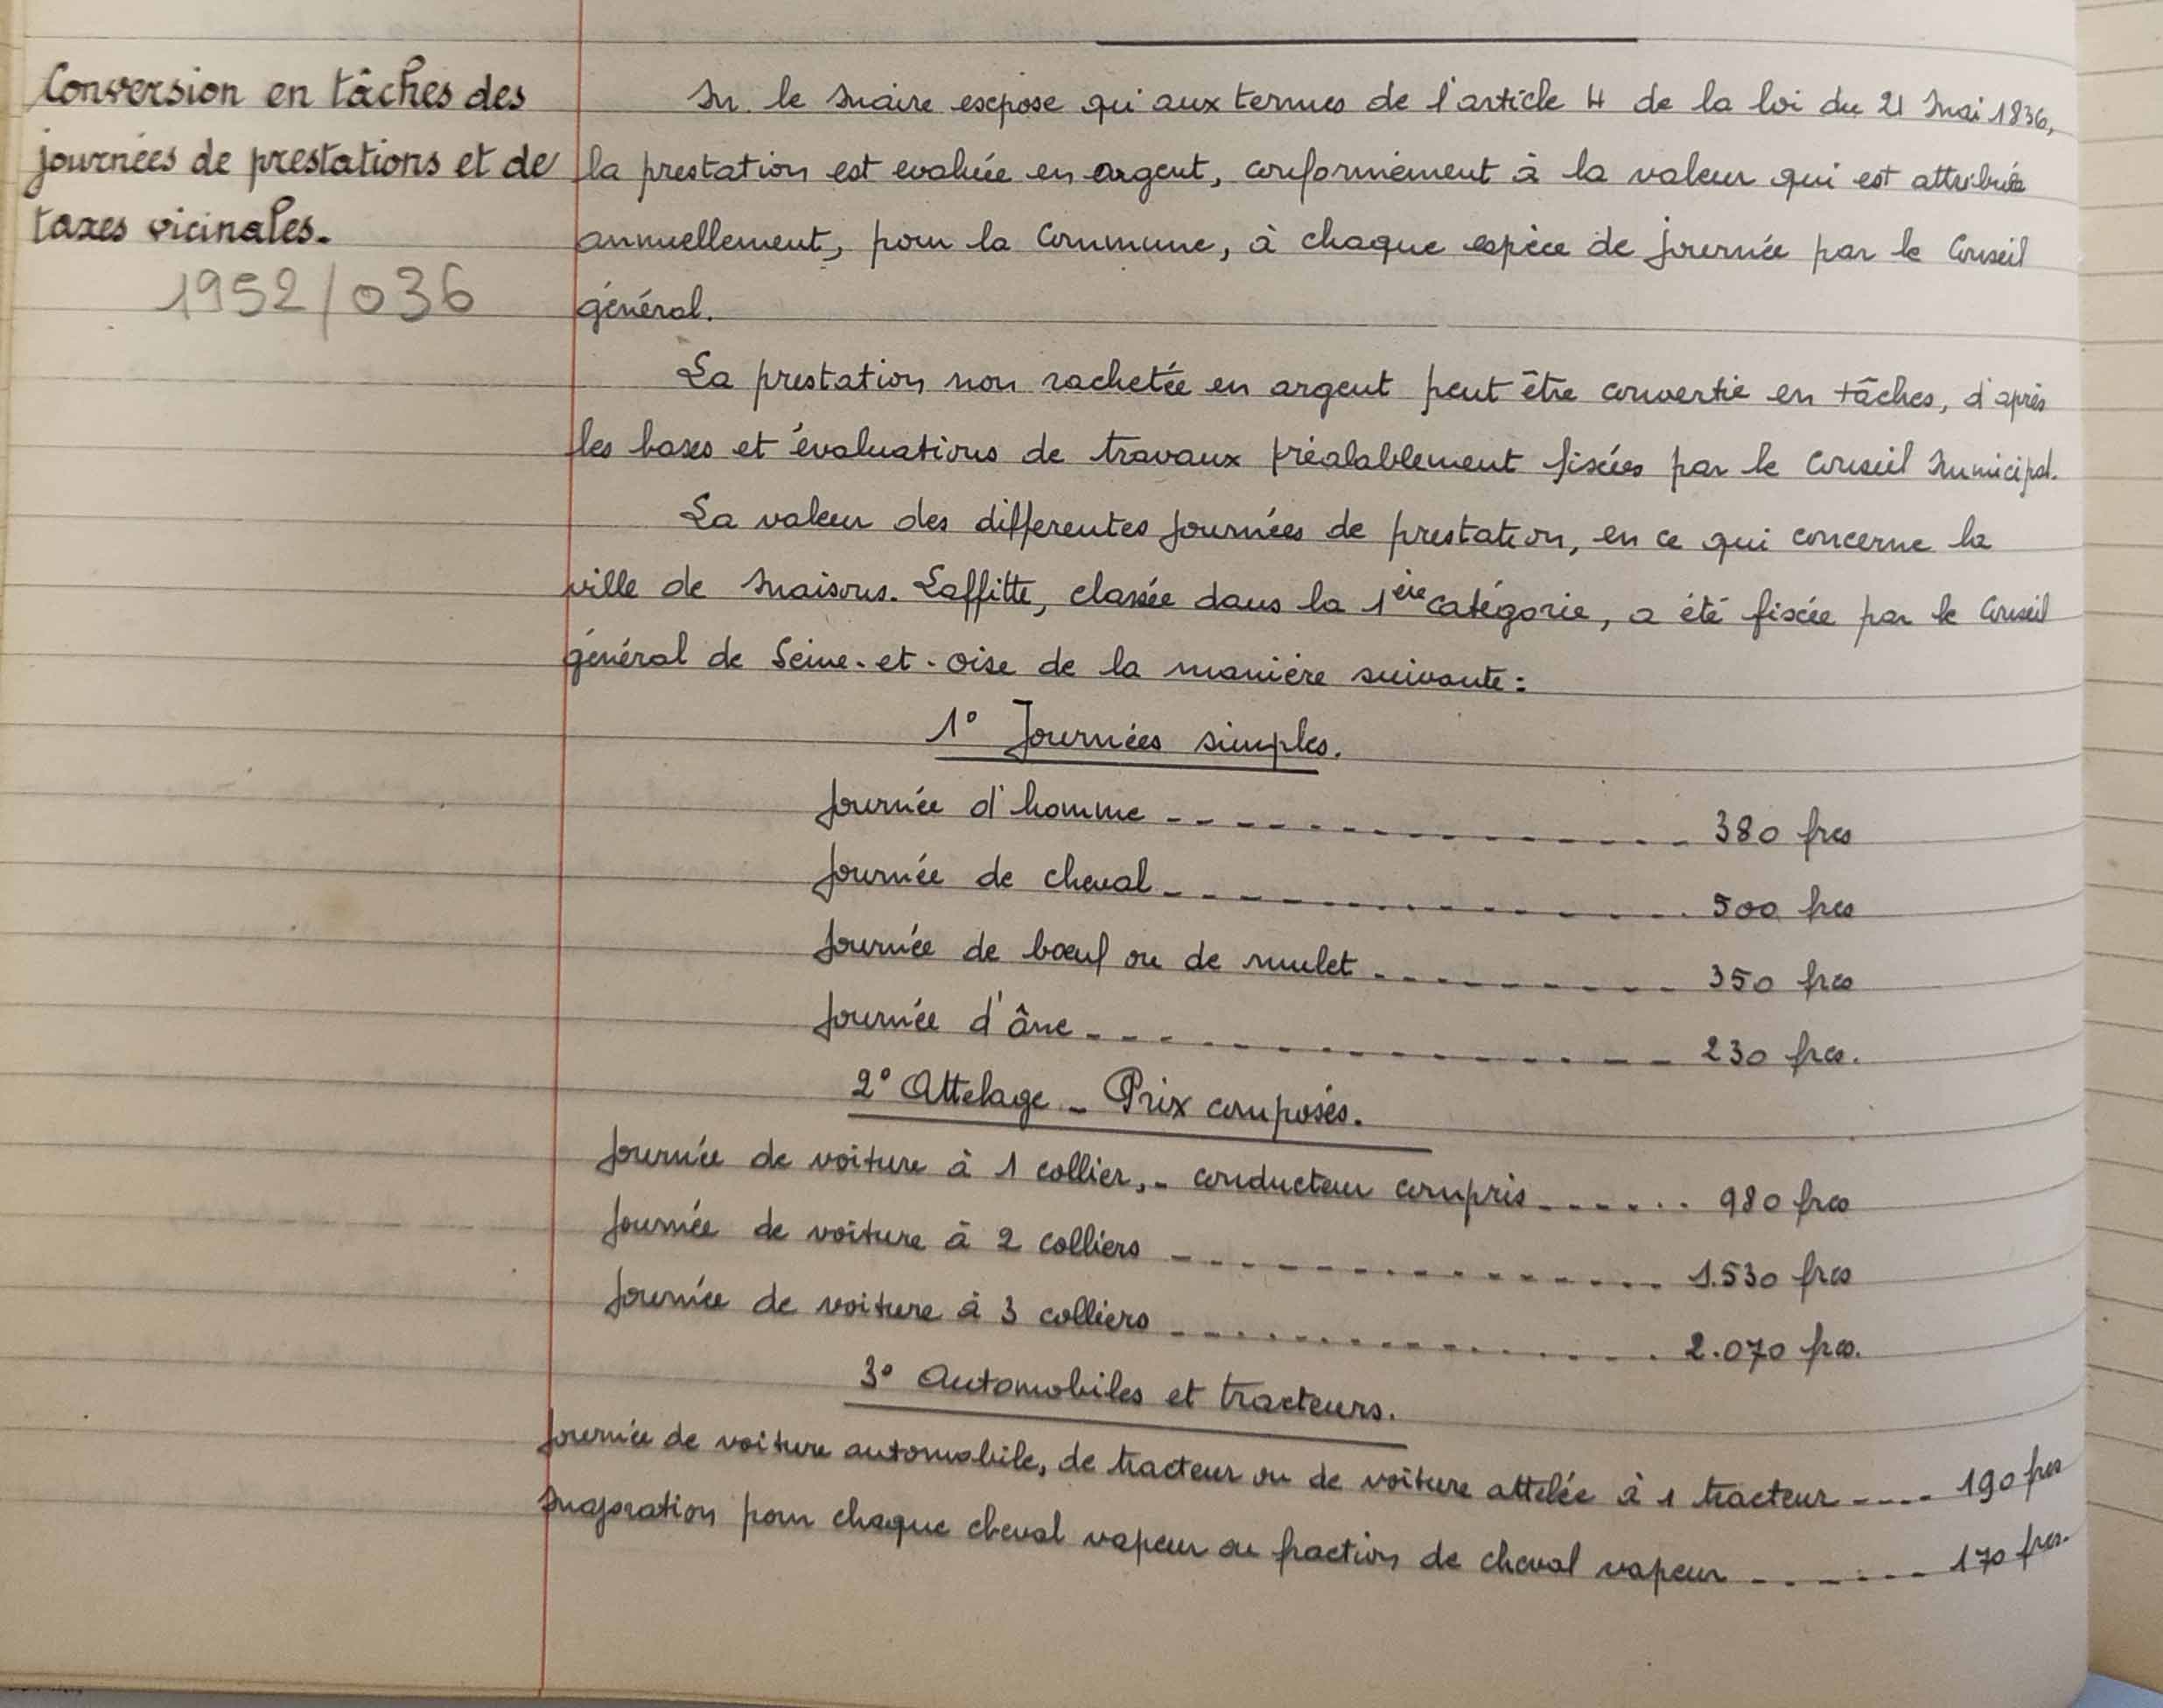 Conversion en tâches des
journées de prestations et de
taxes vicinales.
1952/036
M. le Maire expose qu'aux termes de l'article 4 de la loi du 21 Mai 1836,
la prestation est evaluée en argent, conformément à la valeur qui est attribuée
annuellement, pour la Commune, à chaque espèce de journée par le Conseil
général.
La prestation non rachetée en argent peut être convertie en tâches, d'après
les bases et évaluations de travaux préalablement fixées par le Conseil Municipal.
La valeur des differentes journées de prestation, en ce qui concerne la
ville de Maisons-Laffitte, classée dans la 1ère catégorie, a été fixée par le Conseil
général de Seine-et-Oise de la manière suivante:
1° Journées simples.
Journée d'homme --------------- 380 frcs
Journée de cheval --------------- 500 frcs
Journée de bœuf ou de mulet --------- 350 frcs
Journée d'âne ----------------- 230 frcs.
2° Attelage - Prix composés.
Journée de voiture à 1 collier, - conducteur compris ------- 980 frcs
Journée de voiture à 2 colliers --------------- 1.530 frcs
Journée de voiture à 3 colliers --------------- 2.070 frcs.
3° Automobiles et tracteurs.
Journée de voiture automobile, de tracteur ou de voiture attelée à 1 tracteur ---- 190 frcs
Majoration pour chaque cheval vapeur ou fraction de cheval vapeur ------- 170 frcs.